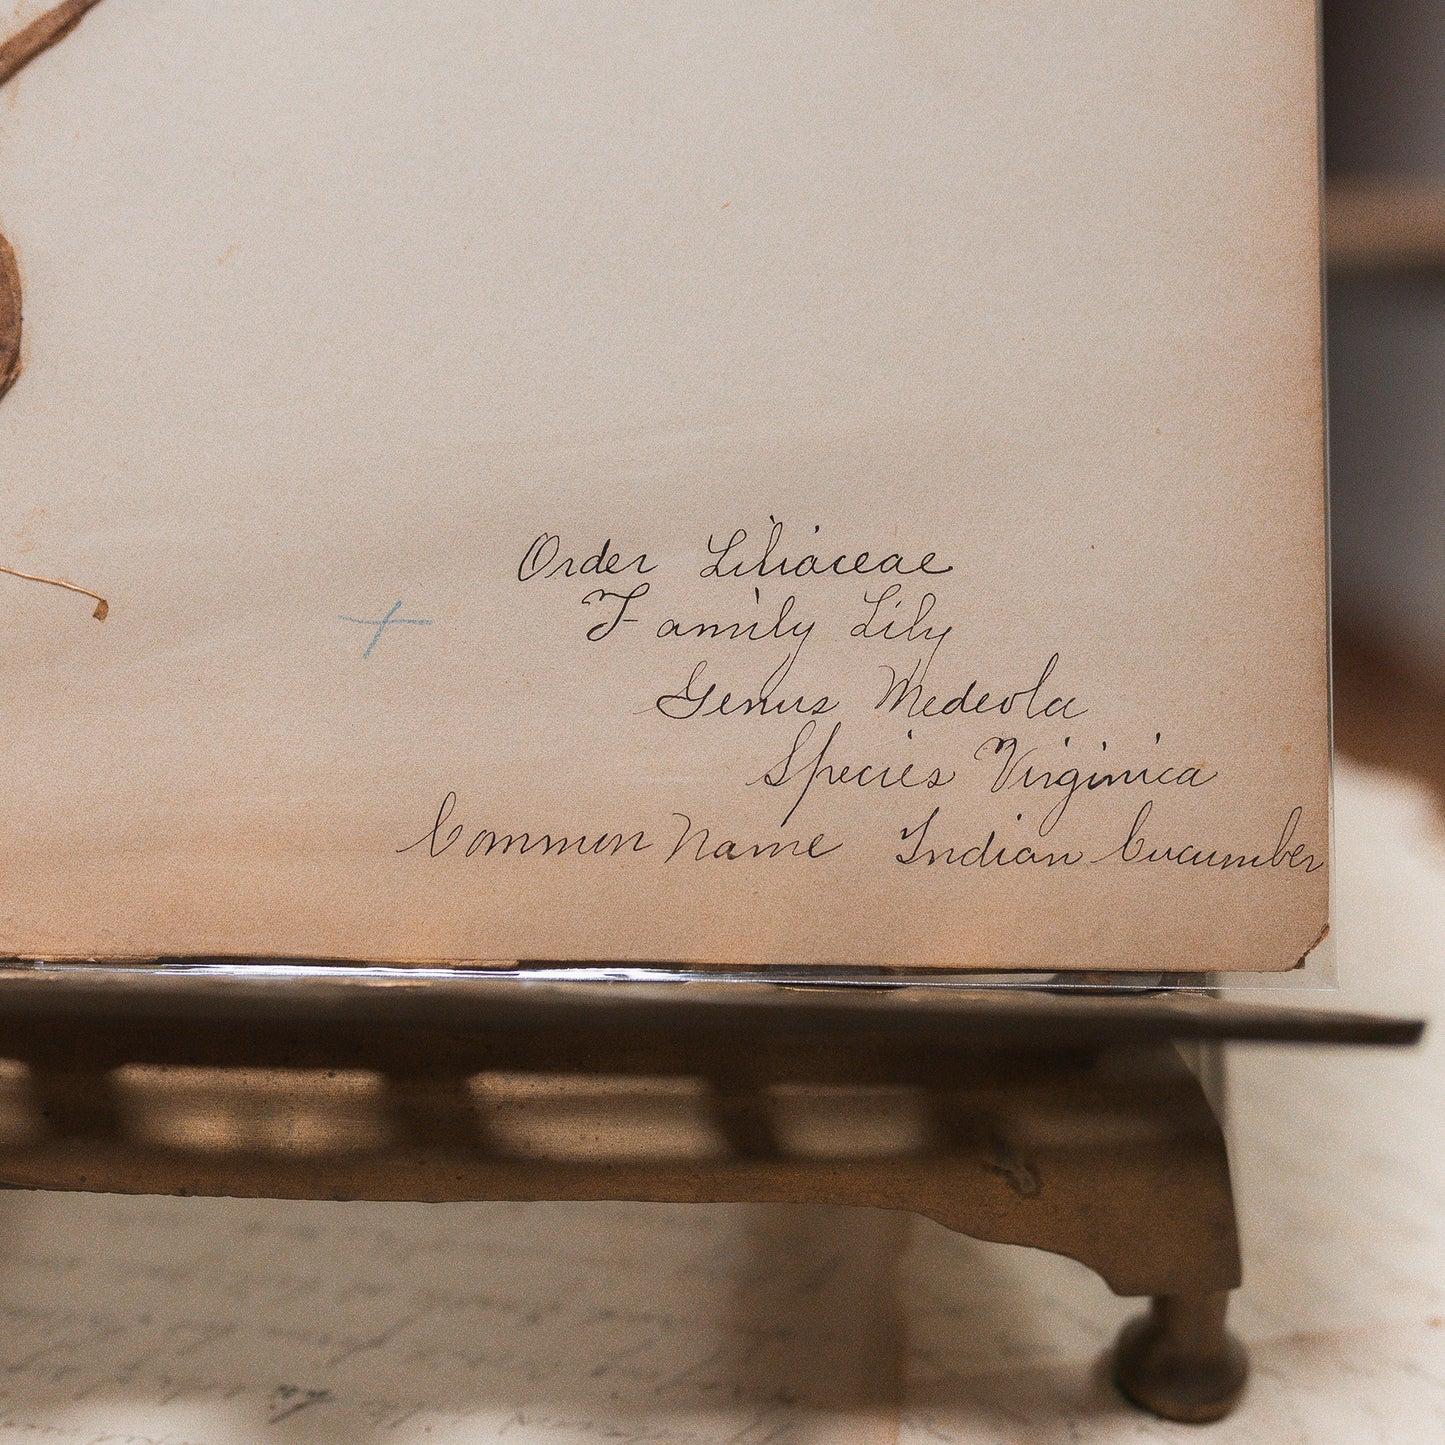 Order Liliaceae
Family Lily
Genus Medeola
Species Virginica
Common Name Indian Cucumber